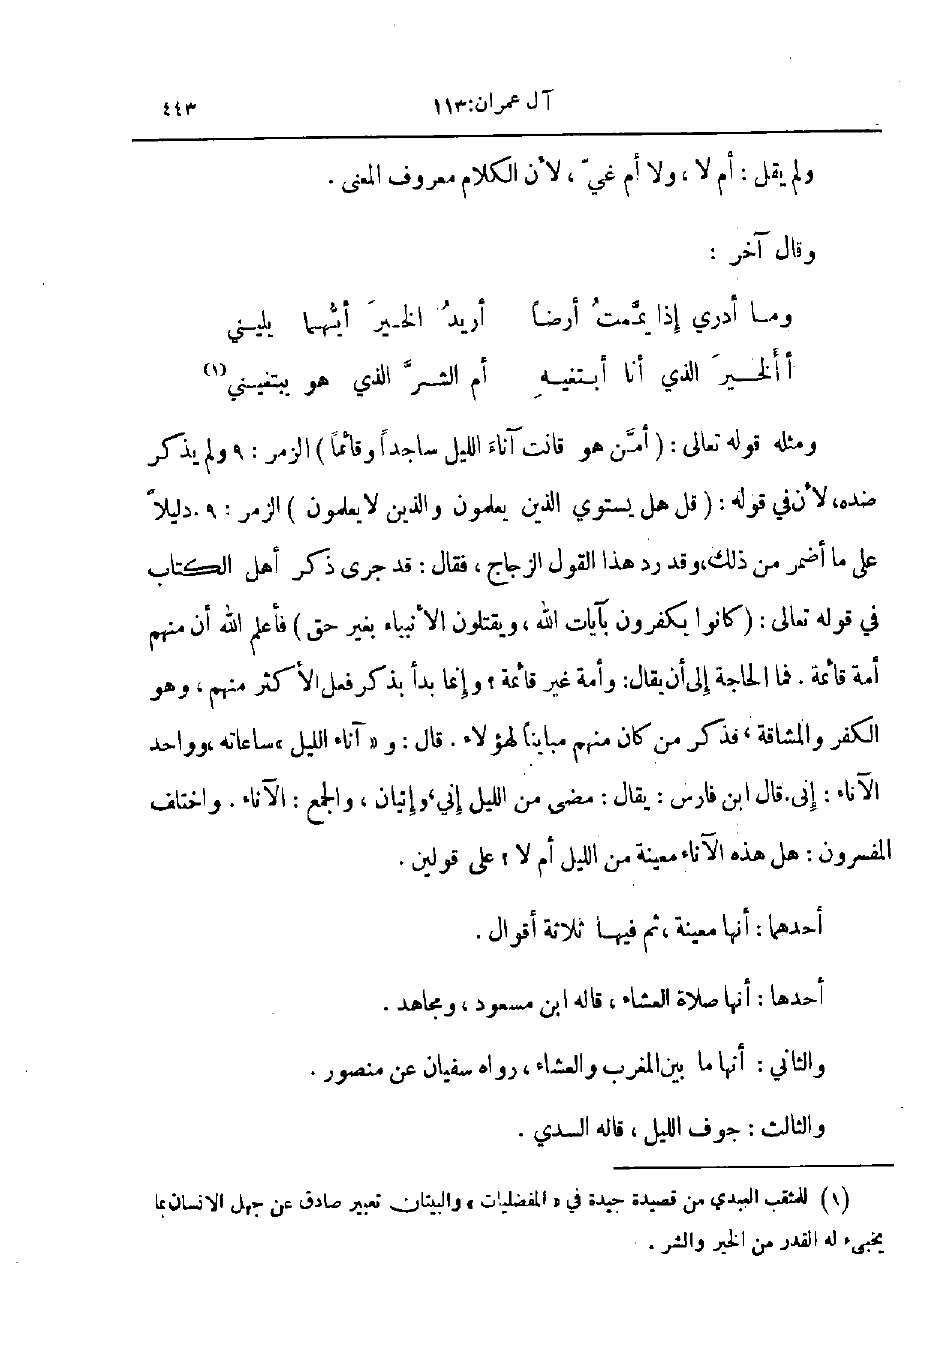 آل عمران: ١١٣ ٤٤٣
ولم يقل : أم لا ، ولا أم غيّ ، لأن الكلام معروف المعنى .
وقال آخر :
ومـا أدري إذا يمَّمتُ أرضـاً أريدُ الخـيرَ أيُّهـا يليـني
أألخـيرَ الذي أنا أبـتغيـهِ أم الشـرَّ الذي هو يبتغيـني (١)
ومثله قوله تعالى : ( أمَّن هو قانت آناءَ الليل ساجداً وقائماً ) الزمر : ٩ ولم يذكر
ضده، لأن في قوله : ( قل هل يستوي الذين يعلمون والذين لا يعلمون ) الزمر : ٩ . دليلاً
على ما أضمر من ذلك، وقد رد هذا القول الزجاج ، فقال : قد جرى ذكر أهل الكتاب
في قوله تعالى : ( كانوا يكفرون بآيات الله ، ويقتلون الأنبياء بغير حق ) فأعلم الله أن منهم
أمة قائمة . فما الحاجة إلى أن يقال : وأمة غير قائمة ؟ وإنما بدأ بذكر فعل الأكثر منهم ، وهو
الكفر والمشاقة ، فذكر من كان منهم مبايناً لهؤلاء . قال : و « آناء الليل » ساعاته ، وواحد
الآناء : إنى. قال ابن فارس : يقال : مضى من الليل إني ، وإنيان ، والجمع : الآناء . واختلف
المفسرون : هل هذه الآناء معينة من الليل أم لا ؟ على قولين .
أحدهما : أنها معينة ، ثم فيهـا ثلاثة أقوال .
أحدها : أنها صلاة العشاء ، قاله ابن مسعود ، ومجاهد .
والثاني : أنها ما بين المغرب والعشاء ، رواه سفيان عن منصور .
والثالث : جوف الليل ، قاله السدي .
(١) للمثقب العبدي من قصيدة جيدة في « المفضليات » والبيتان تعبير صادق عن جهل الانسان بما
يخبىء له القدر من الخير والشر .